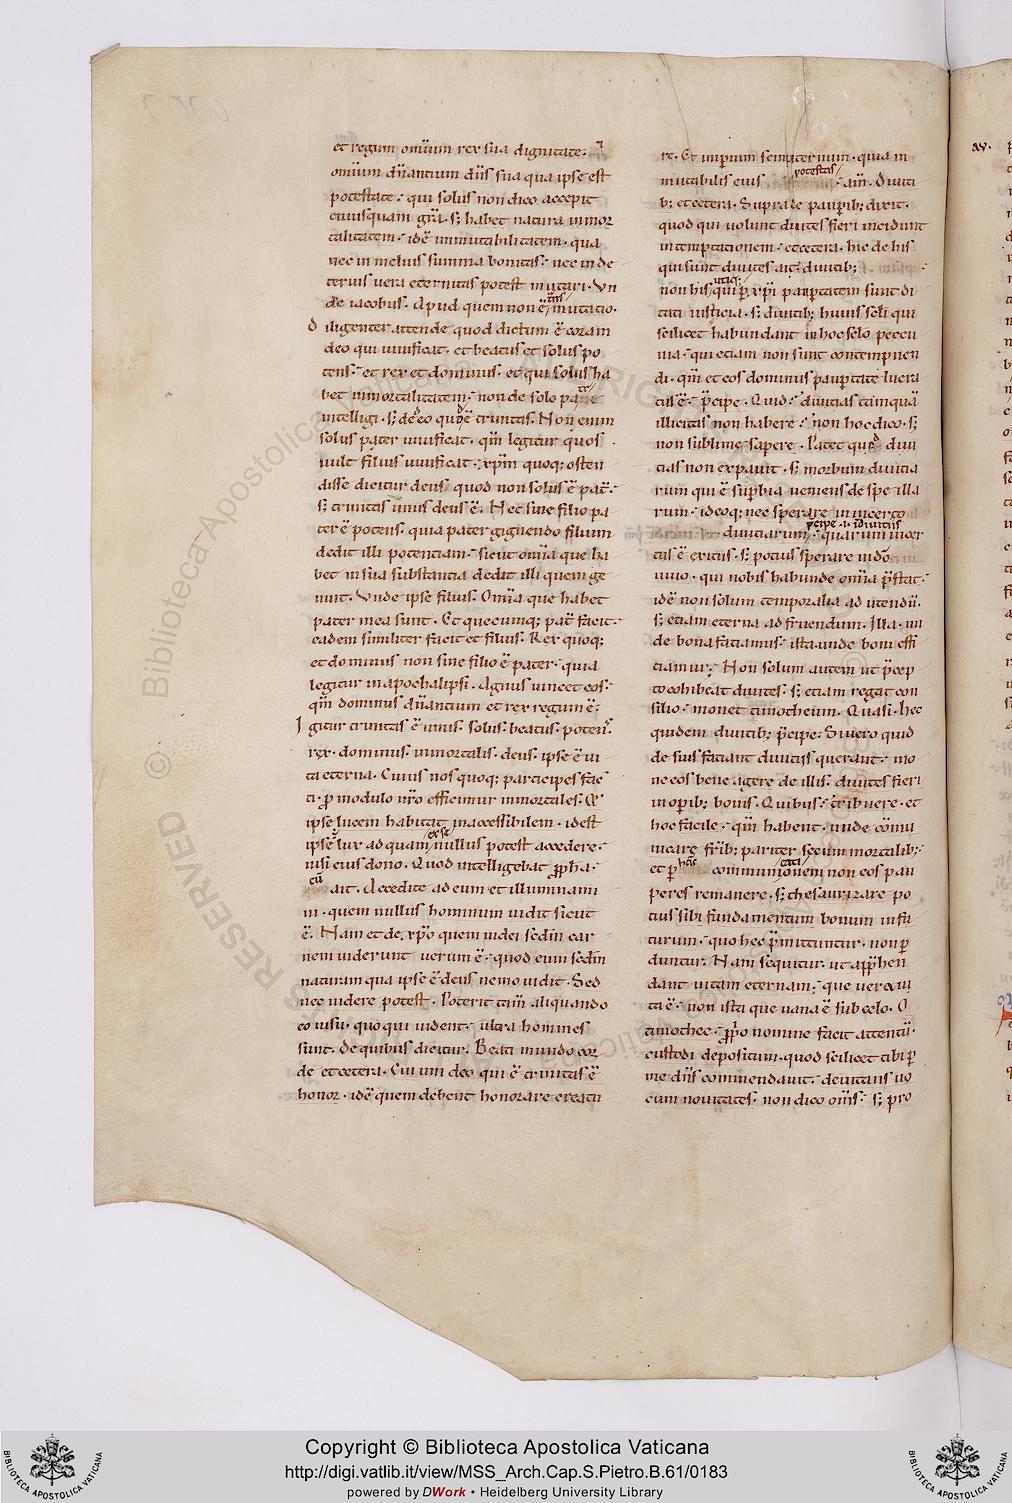 et regum om̅ium rex sua dignitate. ⁊
om̅ium dn̅antium dn̅s sua qua ipse est
potestate. qui solus non dico accepit
cuiusquam gr̅a. s; habet natura inmor
talitatem. ide̅ inmutabilitatem. qua
nec in melius summa bonitas. nec in de
terius uera eternitas potest mutari. Vn
de iacobus. Apud quem non e̅ trans/mutatio.
diligenter attende quod dictum e̅ coram
deo qui uiuificat. et beatus et solus po
tens. et rex et dominus. et qui solus ha
bet inmortalitatem. non de solo patre
intelligi. s; de eo quod e̅ trinitas. Non enim
solus pater uiuificat. qm̅ legitur quos
uult filius uiuificat. xp̅m quoq; osten
disse dicitur deus. quod non solus e̅ pat̅.
s; trinitas unus deus e̅. Nec sine filio pa
ter e̅ potens. quia pater gignendo filium
dedit illi potentiam. sicut om̅ia que ha
bet in sua substantia dedit illi quem ge
nuit. Vnde ipse filius. Om̅ia que habet
pater mea sunt. Et quecumq; pat̅ facit.
eadem similiter facit et filius. Rex quoq;
et dominus non sine filio e̅ pater. quia
legitur in apochalipsi. Agnus uincet eos.
qm̅ dominus dn̅antium et rex regum e̅.
Igitur trinitas e̅ unus. solus. beatus. potens.
rex. dominus. inmortalis. deus. ipse e̅ ui
ta eterna. Cuius nos quoq; participes fac
ti. p̅ modulo nr̅o efficimur inmortales. Et
ipse lucem habitat inaccessibilem. id est
ipse lux ad quam ex se/ nullus potest accedere.
nisi eius dono. Quod intelligebat pp̅ha.
cu̅ ait. Accedite ad eum et illuminami
ni. quem nullus hominum uidit sicut
e̅. Nam et de xp̅o quem iudei sed̅m car
nem uiderunt uerum e̅. quod eum sed̅m
naturam qua ipse e̅ deus nemo uidit. Sed
nec uidere potest. Poterit tam̅ aliquando
eo uisu. quo qui uident. ultra homines
sunt. de quibus dicitur. Beati mundo cor
de et cetera. Cui uni deo qui e̅ trinitas e̅
honor. ide̅ quem debent honorare creatu
re. Et imperium sempiternum. quia in
mutabilis eius potestas/. am̅. Diuiti
b; et cetera. Supra de paup̅ib; dixit.
quod qui uolunt diuites fieri incidunt
in temptationem. et cetera. hic de his
qui sunt diuites ait. diuitib;
non his utiq; qui p̅ xp̅i paup̅tatem sunt di
tati iusticia. s; diuitib; huius sc̅li qui
scilicet habundant in hoc sc̅lo pecun
nia. qui etiam non sunt contempnen
di. qm̅ et eos dominus paup̅tate lucra
tus e̅. p̅cipe. Quid. diuitias tamqua̅
illicitas non habere. non hoc dico. s;
non sublime sapere. Patet quod diui
tias non expauit. s; morbum diuitia
rum qui e̅ sup̅bia ueniens de spe illa
rum. ideoq; nec sperare in incerto
diuitiarum. p̅cipe .i. in diuitiis quarum incer
tus e̅ exitus. s; potius sperare in deo
uiuo. qui nobis habunde om̅ia p̅stat.
ide̅ non solum temporalia ad utendu̅.
s; etiam eterna ad fruendum. Illa. un
de bona faciamus. ista. unde boni effi
ciamur. Non solum autem ut p̅cep
to cohibeat diuites. s; etiam regat con
silio. monet timotheum. Quasi. hec
quidem diuitib; p̅cipe. Si uero quid
de suis faciant diuitiis querant. mo
ne eos bene agere de illis. diuites fieri
in op̅ib; bonis. Quibus. tribuere. et
hoc facile. qm̅ habent. unde co̅mu
nicare fr̅ib; pariter secum mortalib;.
et p̅ hanc communicationem non eos pau
peres remanere. s; thesaurizare po
tius sibi fundamentum bonum in fu
turum. quo hec p̅mittuntur. non p̅
duntur. Nam sequitur. ut app̅hen
dant uitam eternam. que uera ui
ta e̅. non ista que uana e̅ sub celo. O
timothee. pp̅o nomine facit attentu̅.
custodi depositum. quod scilicet tibi p̅
me dn̅s commendauit. deuitans uo
cum nouitates. non dico om̅s. s; pro
av.
© Biblioteca Apostolica Vaticana ALL RIGHTS RESERVED
BIBLIOTECA APOSTOLICA VATICANA
Copyright © Biblioteca Apostolica Vaticana
http://digi.vatlib.it/view/MSS_Arch.Cap.S.Pietro.B.61/0183
powered by DWork • Heidelberg University Library
BIBLIOTECA APOSTOLICA VATICANA